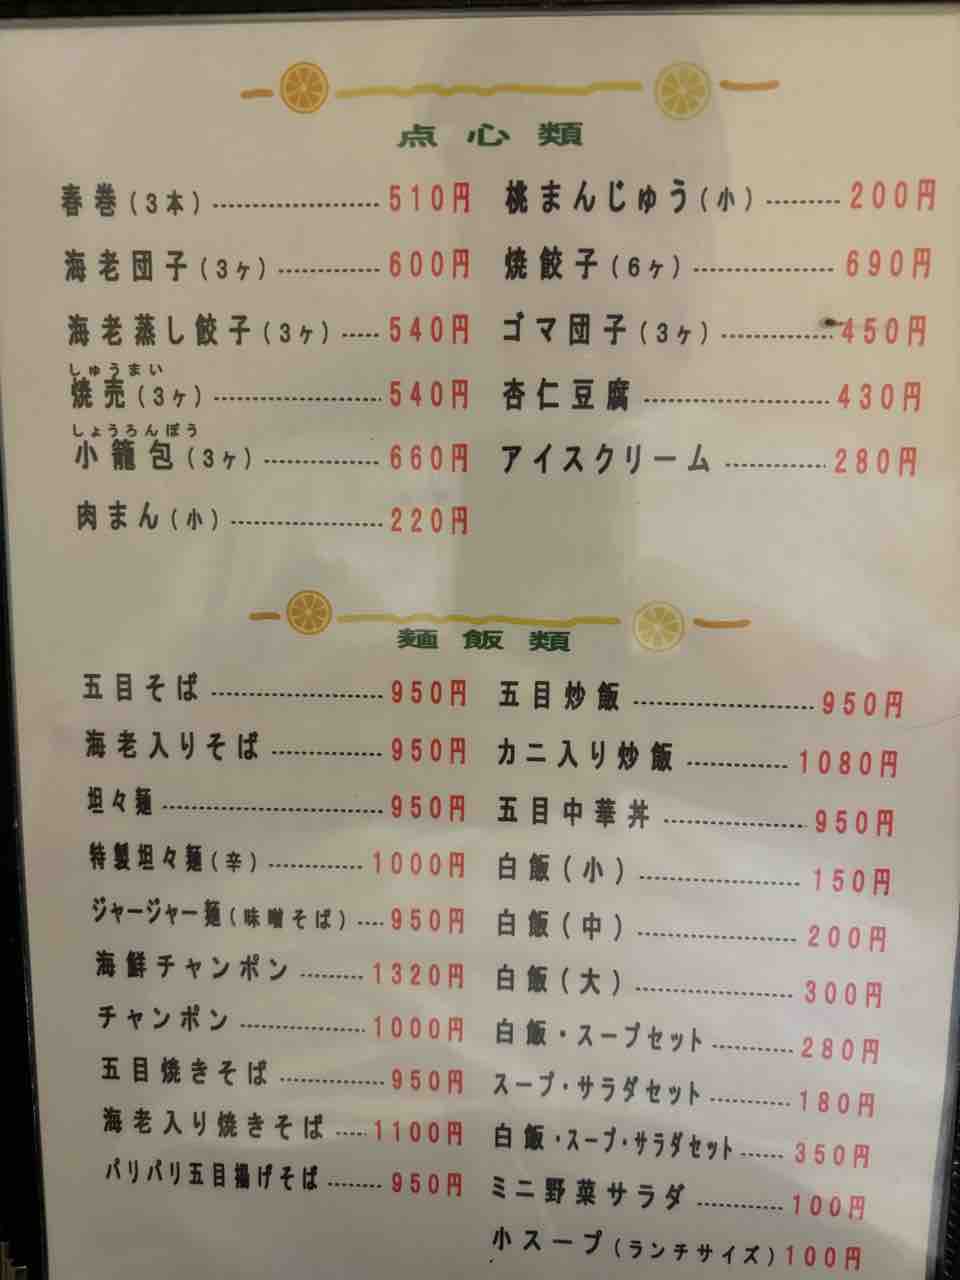 点心類
春巻(3本) 510円
海老団子(3ヶ) 600円
海老蒸し餃子(3ヶ) 540円
しゅうまい
焼売(3ヶ) 540円
しょうろんぽう
小籠包(3ヶ) 660円
肉まん(小) 220円
桃まんじゅう(小) 200円
焼餃子(6ヶ) 690円
ゴマ団子(3ヶ) 450円
杏仁豆腐 430円
アイスクリーム 280円
麺飯類
五目そば 950円
海老入りそば 950円
坦々麺 950円
特製坦々麺(辛) 1000円
ジャージャー麺(味噌そば) 950円
海鮮チャンポン 1320円
チャンポン 1000円
五目焼きそば 950円
海老入り焼きそば 1100円
パリパリ五目揚げそば 950円
五目炒飯 950円
カニ入り炒飯 1080円
五目中華丼 950円
白飯(小) 150円
白飯(中) 200円
白飯(大) 300円
白飯・スープセット 280円
スープ・サラダセット 180円
白飯・スープ・サラダセット 350円
ミニ野菜サラダ 100円
小スープ(ランチサイズ) 100円